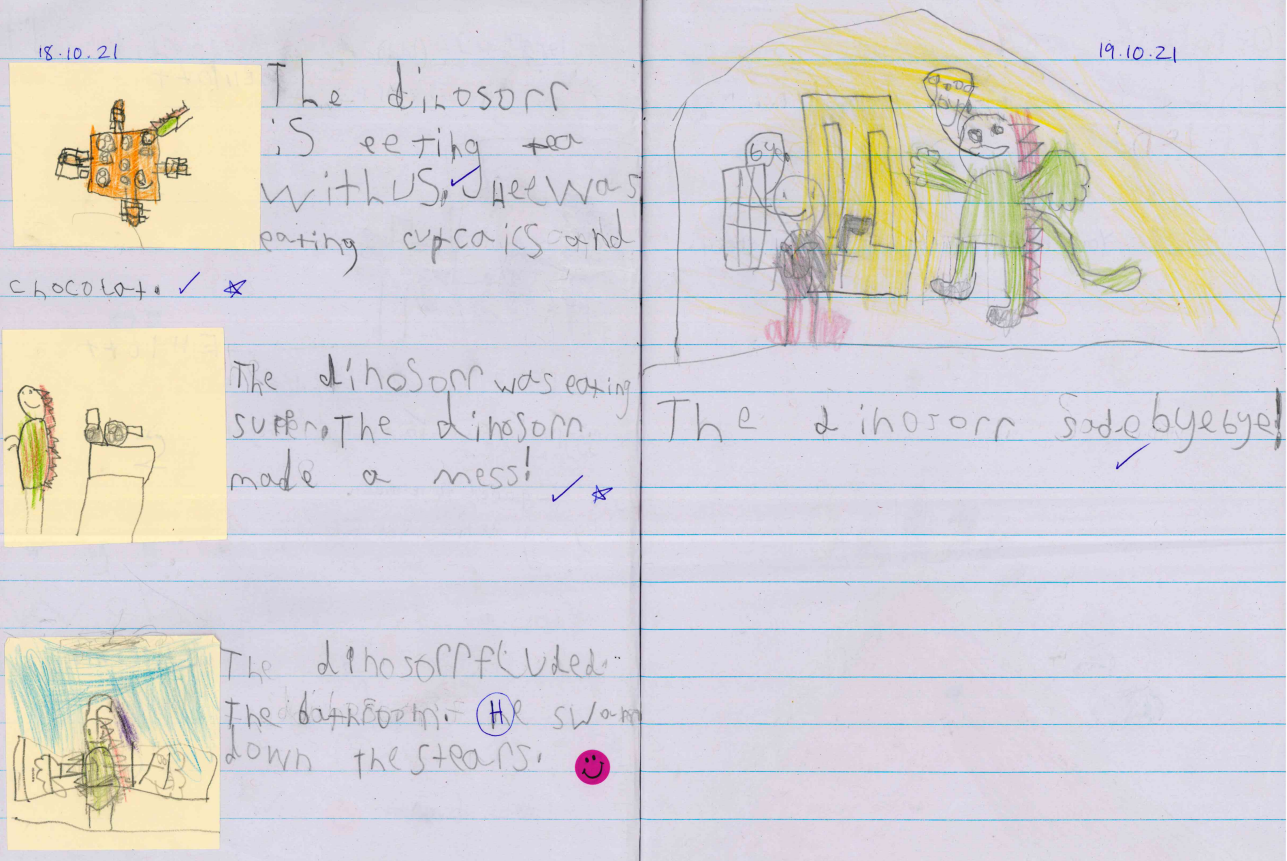 18.10.21
The dinosorr
is eeting tea
with us. Hee was
eating cupcaics and
chocolat.
The dinosorr was eating
supper. The dinosorr
made a mess!
The dinosorr fluded
the bathroom. He swam
down the stears.
19.10.21
bye
bye
The dinosorr sade byebye!